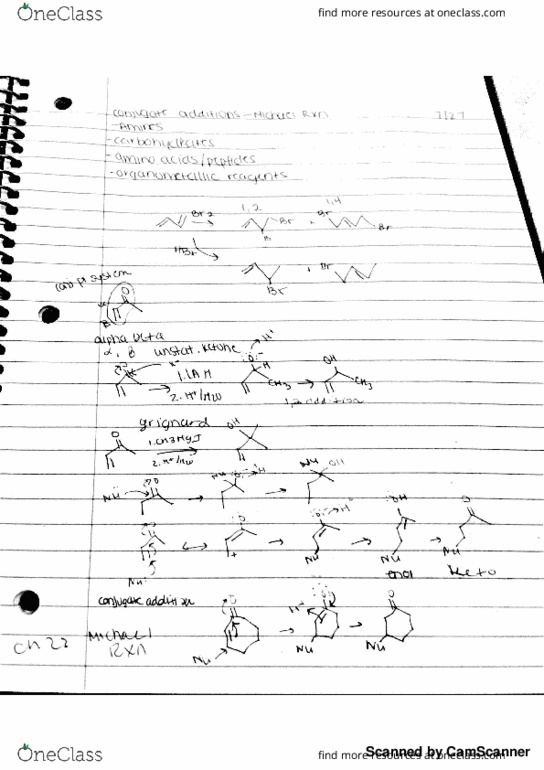 OneClass find more resources at oneclass.com
conjugate additions - Michael Rxn 7/27
-Amines
-carbohydrates
-amino acids/peptides
-organometallic reagents
1,2 1,4
Br2 Br Br
Br
HBr Br
Br
conj pi system
O
alpha beta
α, β unsat. ketone H+
1. LAH H OH
2. H+/H2O CH3 CH3
1,2 addition
grignard
O 1. CH3MgI OH
2. H+/H2O
Nu Nu OH
Nu Nu Nu
Nu: enol keto
conjugate addition
Michael
Ch 22 RXN
Nu Nu Nu
OneClass find more resources at oneclass.com
Scanned by CamScanner